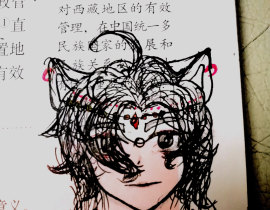 对西藏地区的有效
管理，在中国统一多
民族国家的发展和
族关系
直
置地
有效
意义